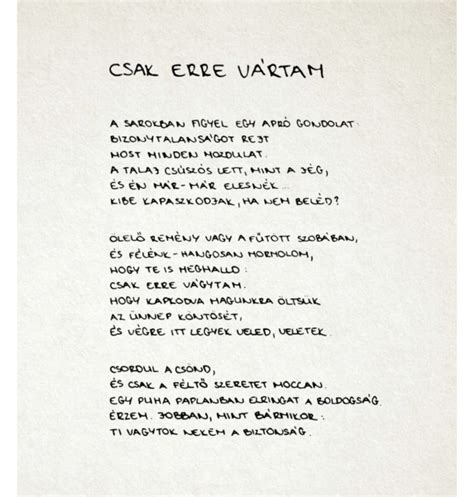 CSAK ERRE VÁRTAM
A SAROKBAN FIGYEL EGY APRÓ GONDOLAT:
BIZONYTALANSÁGOT REJT
MOST MINDEN MOZDULAT.
A TALAJ CSÚSZÓS LETT, MINT A JÉG,
ÉS ÉN MÁR-MÁR ELESNÉK...
KIBE KAPASZKODJAK, HA NEM BELÉD?
ÖLELŐ REMÉNY VAGY A FŰTÖTT SZOBÁBAN,
ÉS FÉLÉNK-HANGOSAN MORMOLOM,
HOGY TE IS MEGHALLD:
CSAK ERRE VÁGYTAM.
HOGY KAPKODVA MAGUNKRA ÖLTSÜK
AZ ÜNNEP KÖNTÖSÉT,
ÉS VÉGRE ITT LEGYEK VELED, VELETEK.
CSORDUL A CSÖND,
ÉS CSAK A FÉLTŐ SZERETET MOCCAN.
EGY PUHA PAPLANBAN ELRINGAT A BOLDOGSÁG.
ÉRZEM. JOBBAN, MINT BÁRMIKOR:
TI VAGYTOK NEKEM A BIZTONSÁG.